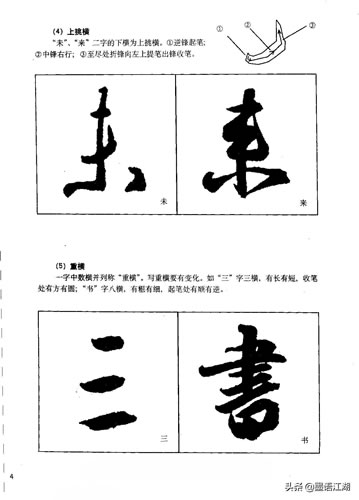 （4）上挑横
“未”、“来”二字的下横为上挑横。①逆锋起笔；
②中锋右行；③至尽处折锋向左上提笔出锋收笔。
① ② ③
未 来
未 来
（5）重横
一字中数横并列称“重横”。写重横要有变化。如“三”字三横，有长有短，收笔
处有方有圆；“书”字八横，有粗有细，起笔处有顺有逆。
三 書
三 书
4
头条@墨语江湖